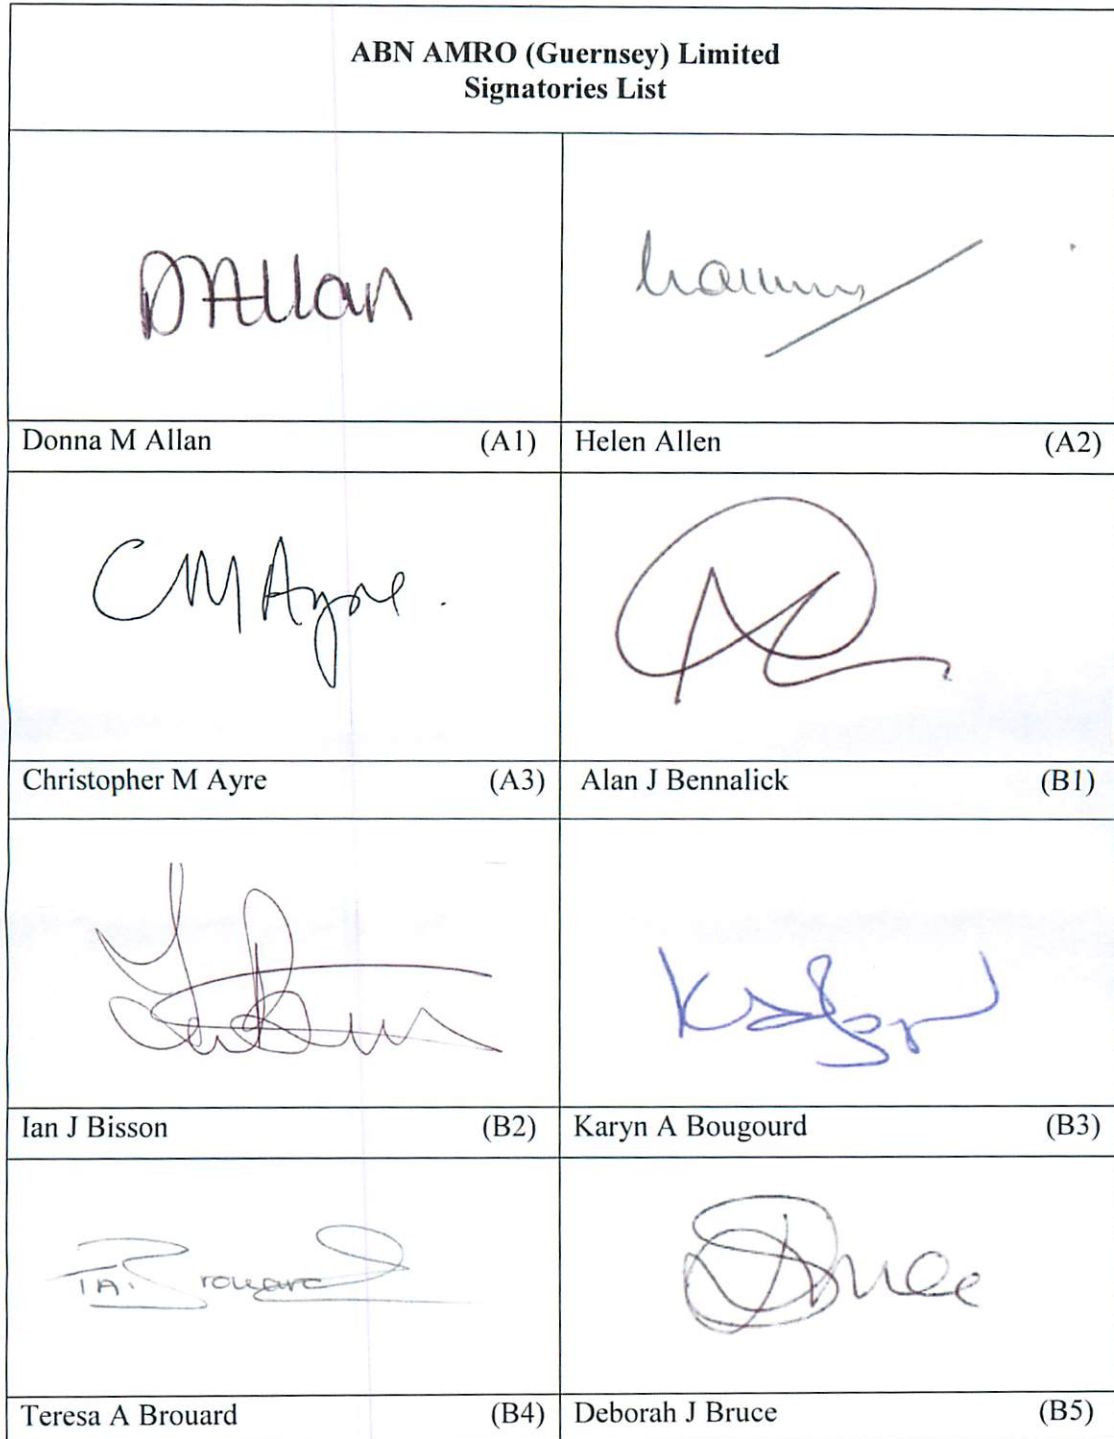 ABN AMRO (Guernsey) Limited
Signatories List
DMAllan
Donna M Allan (A1)
Helen Allen (A2)
C M Ayre.
Christopher M Ayre (A3)
Alan J Bennalick (B1)
Ian J Bisson (B2)
Karyn A Bougourd (B3)
T.A. Brouard
DBruce
Teresa A Brouard (B4)
Deborah J Bruce (B5)